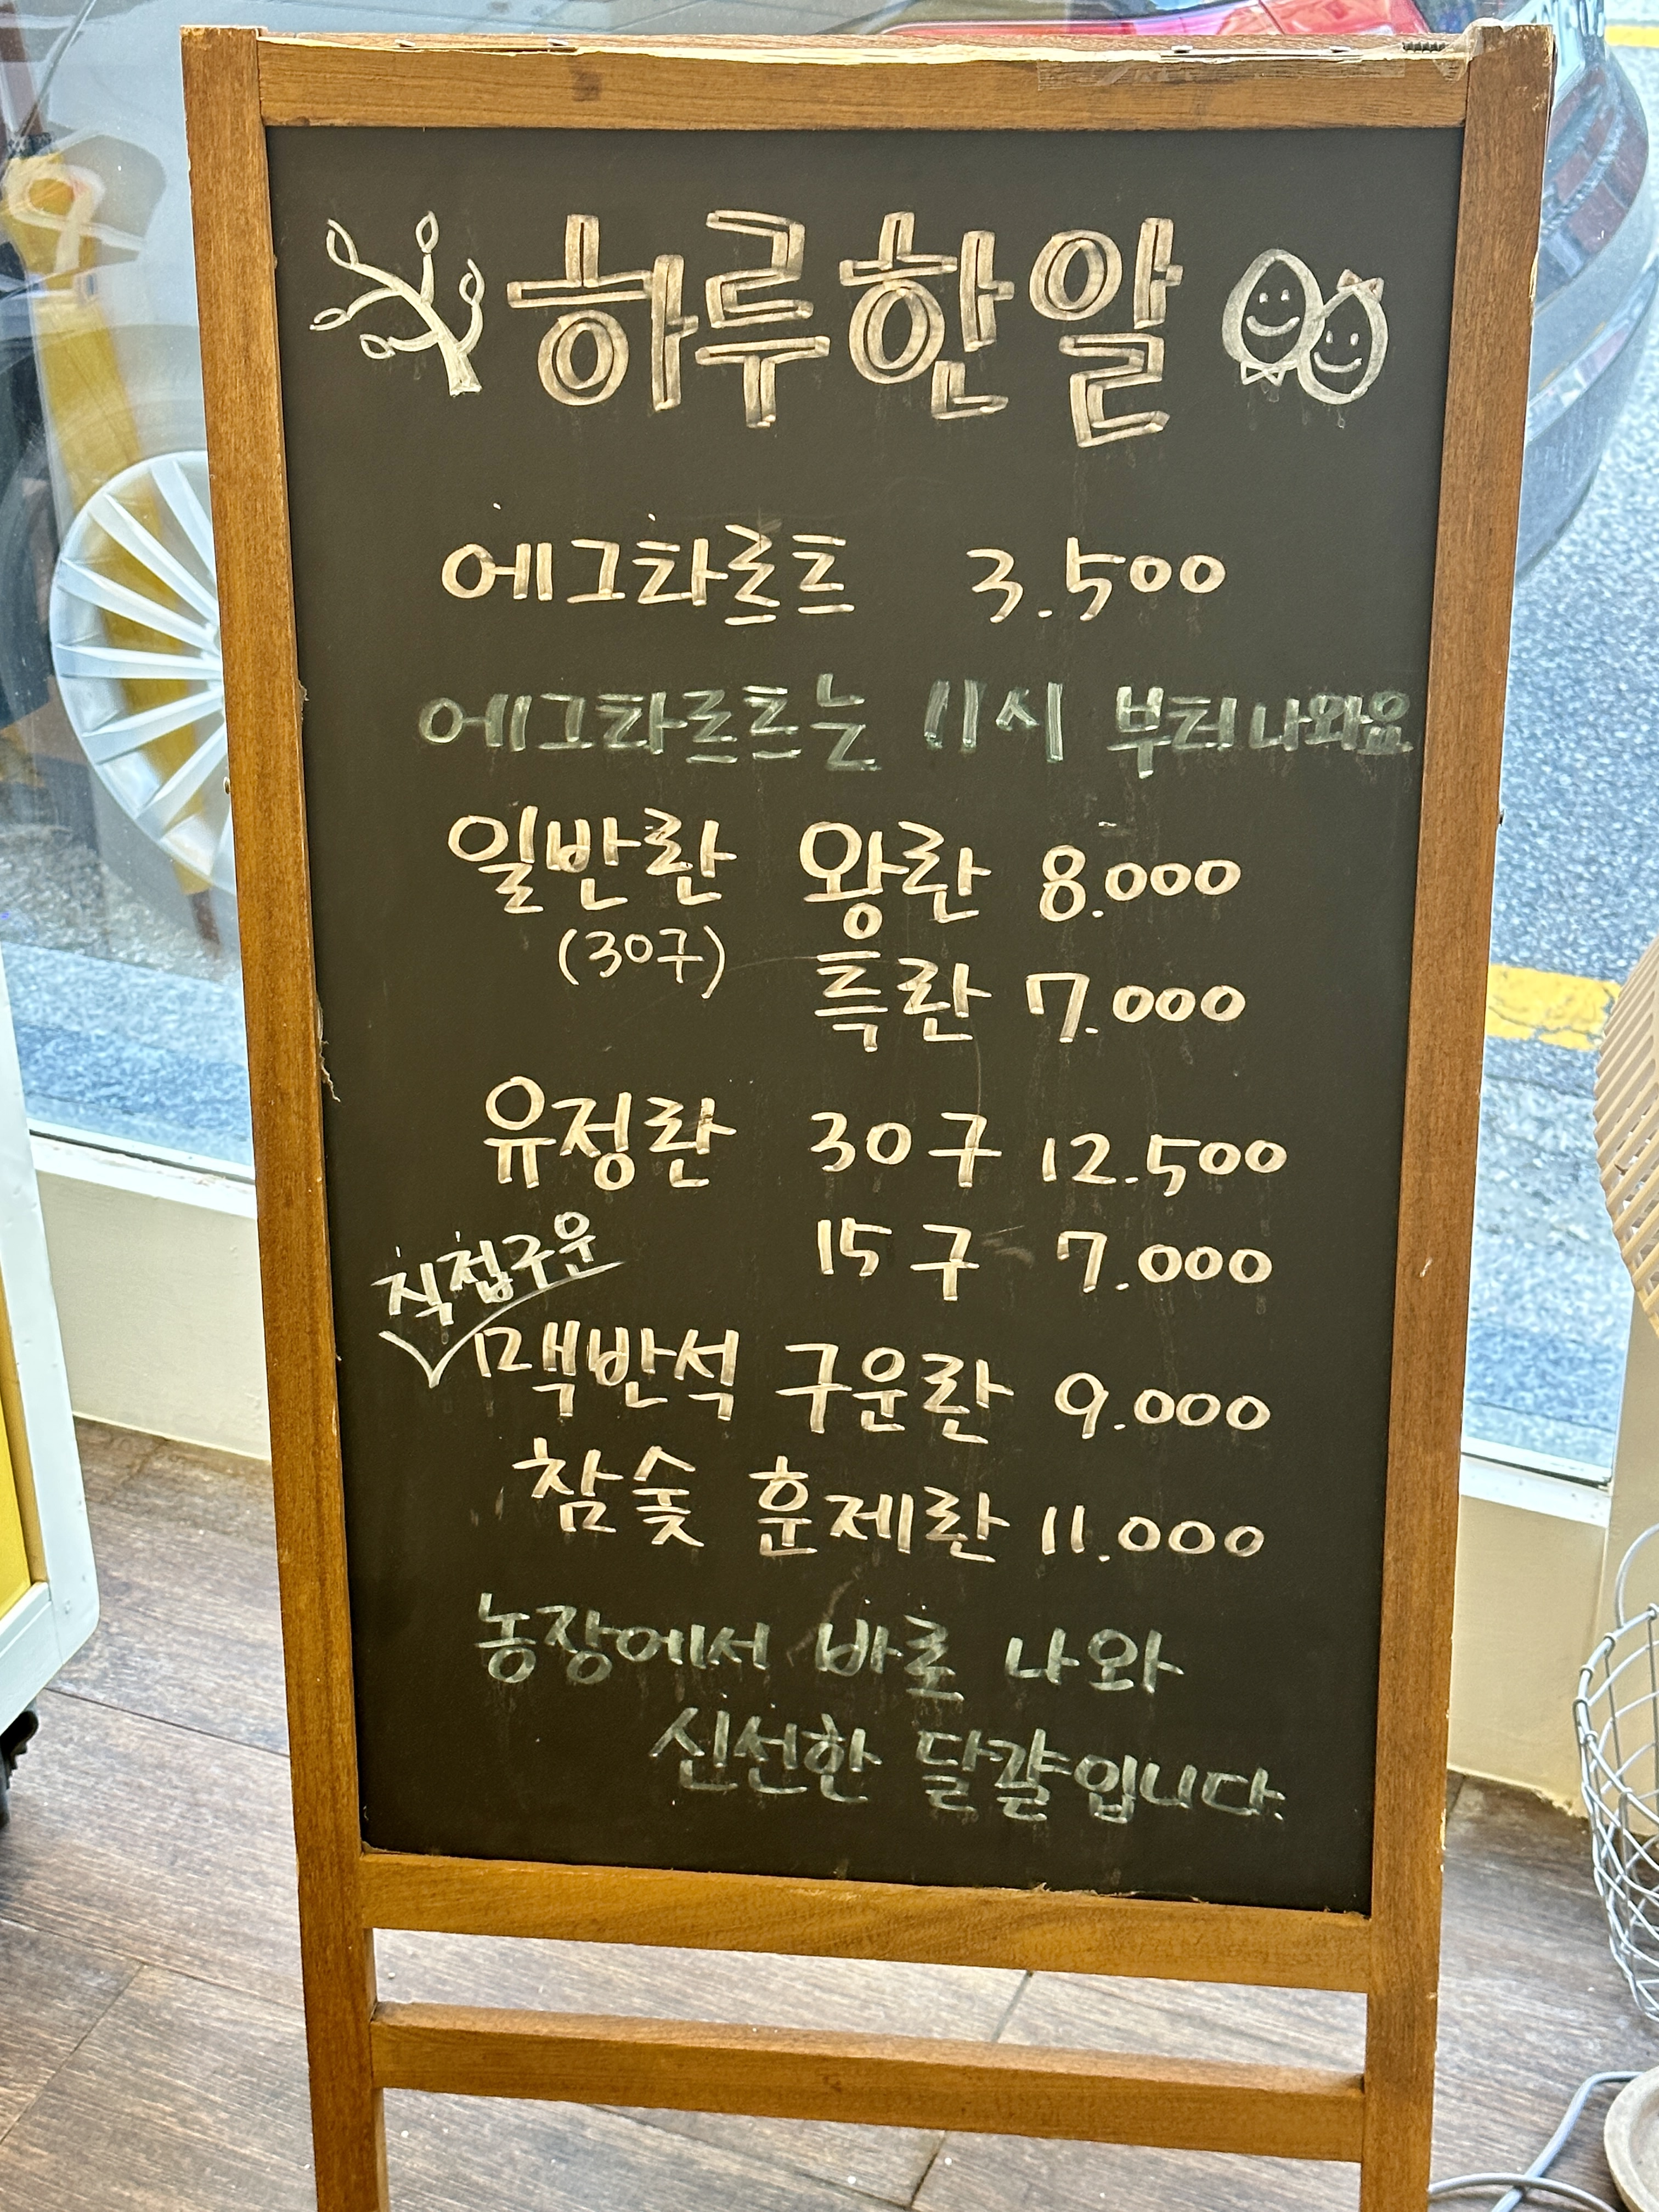 하루한알
에그타르트 3.500
에그타르트는 11시 부터 나와요
일반란 왕란 8.000
(30구) 특란 7.000
유정란 30구 12.500
15구 7.000
직접구운
맥반석 구운란 9.000
참숯 훈제란 11.000
농장에서 바로 나와
신선한 달걀입니다.